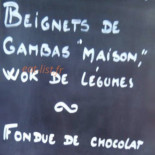 Beignets de
Gambas "Maison,"
Wok de légumes
Fondue de chocolat